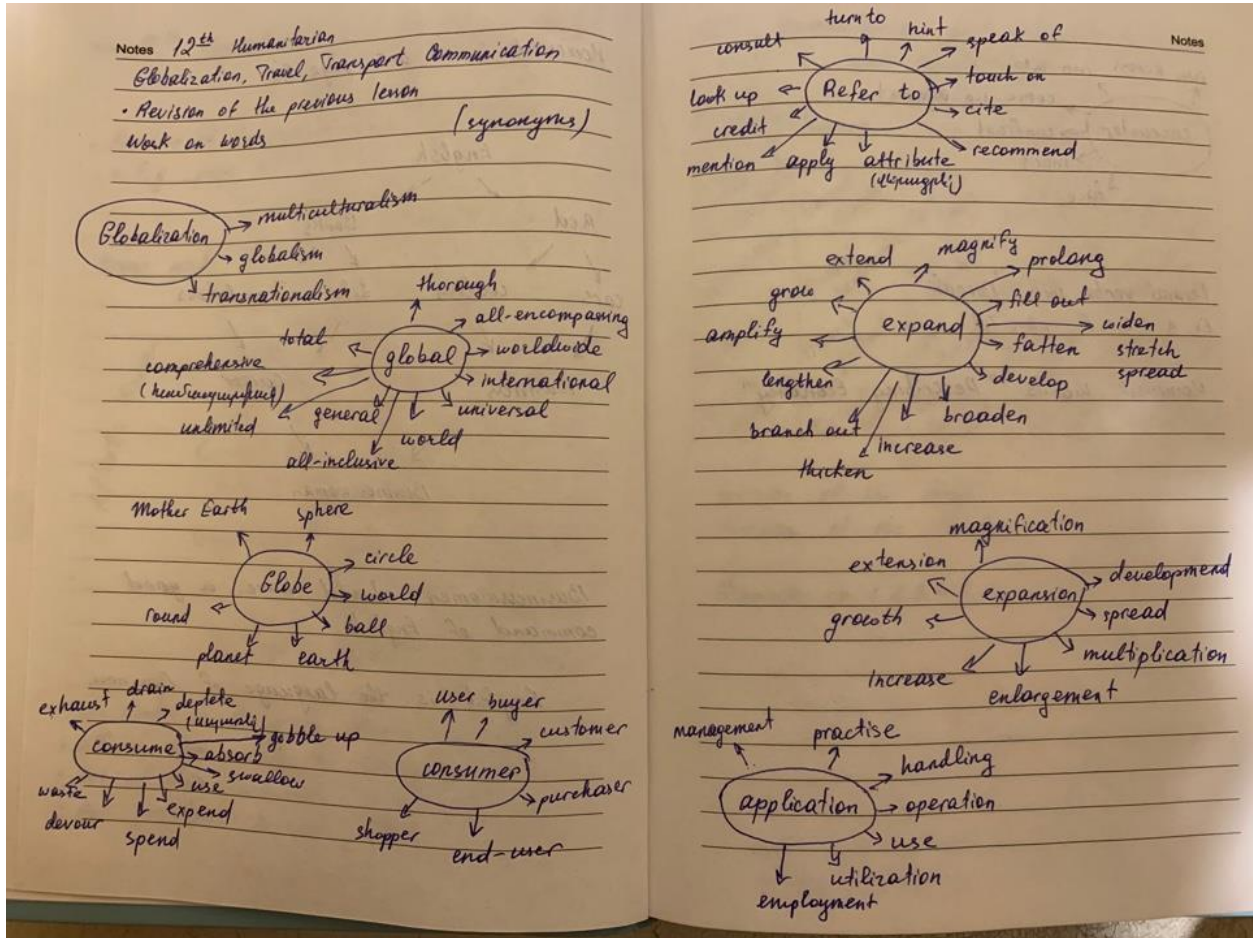 Notes 12th Humanitarian
Globalization, Travel, Transport Communication
• Revision of the previous lesson
Work on words (synonyms)
Globalization
multiculturalism
globalism
transnationalism
global
thorough
all-encompassing
worldwide
international
universal
world
all-inclusive
general
unlimited
comprehensive
total
Globe
Mother Earth
sphere
circle
world
ball
earth
planet
round
consume
exhaust
drain
deplete
gobble up
absorb
swallow
use
expend
spend
devour
waste
consumer
user
buyer
customer
purchaser
end-user
shopper
Notes
Refer to
consult
turn to
hint
speak of
touch on
cite
recommend
attribute
apply
mention
credit
look up
expand
extend
magnify
prolang
fill out
widen
stretch
spread
fatten
develop
broaden
increase
thicken
branch out
lengthen
amplify
grow
expansion
magnification
developmend
spread
multiplication
enlargement
increase
growth
extension
application
management
practise
handling
operation
use
utilization
employment